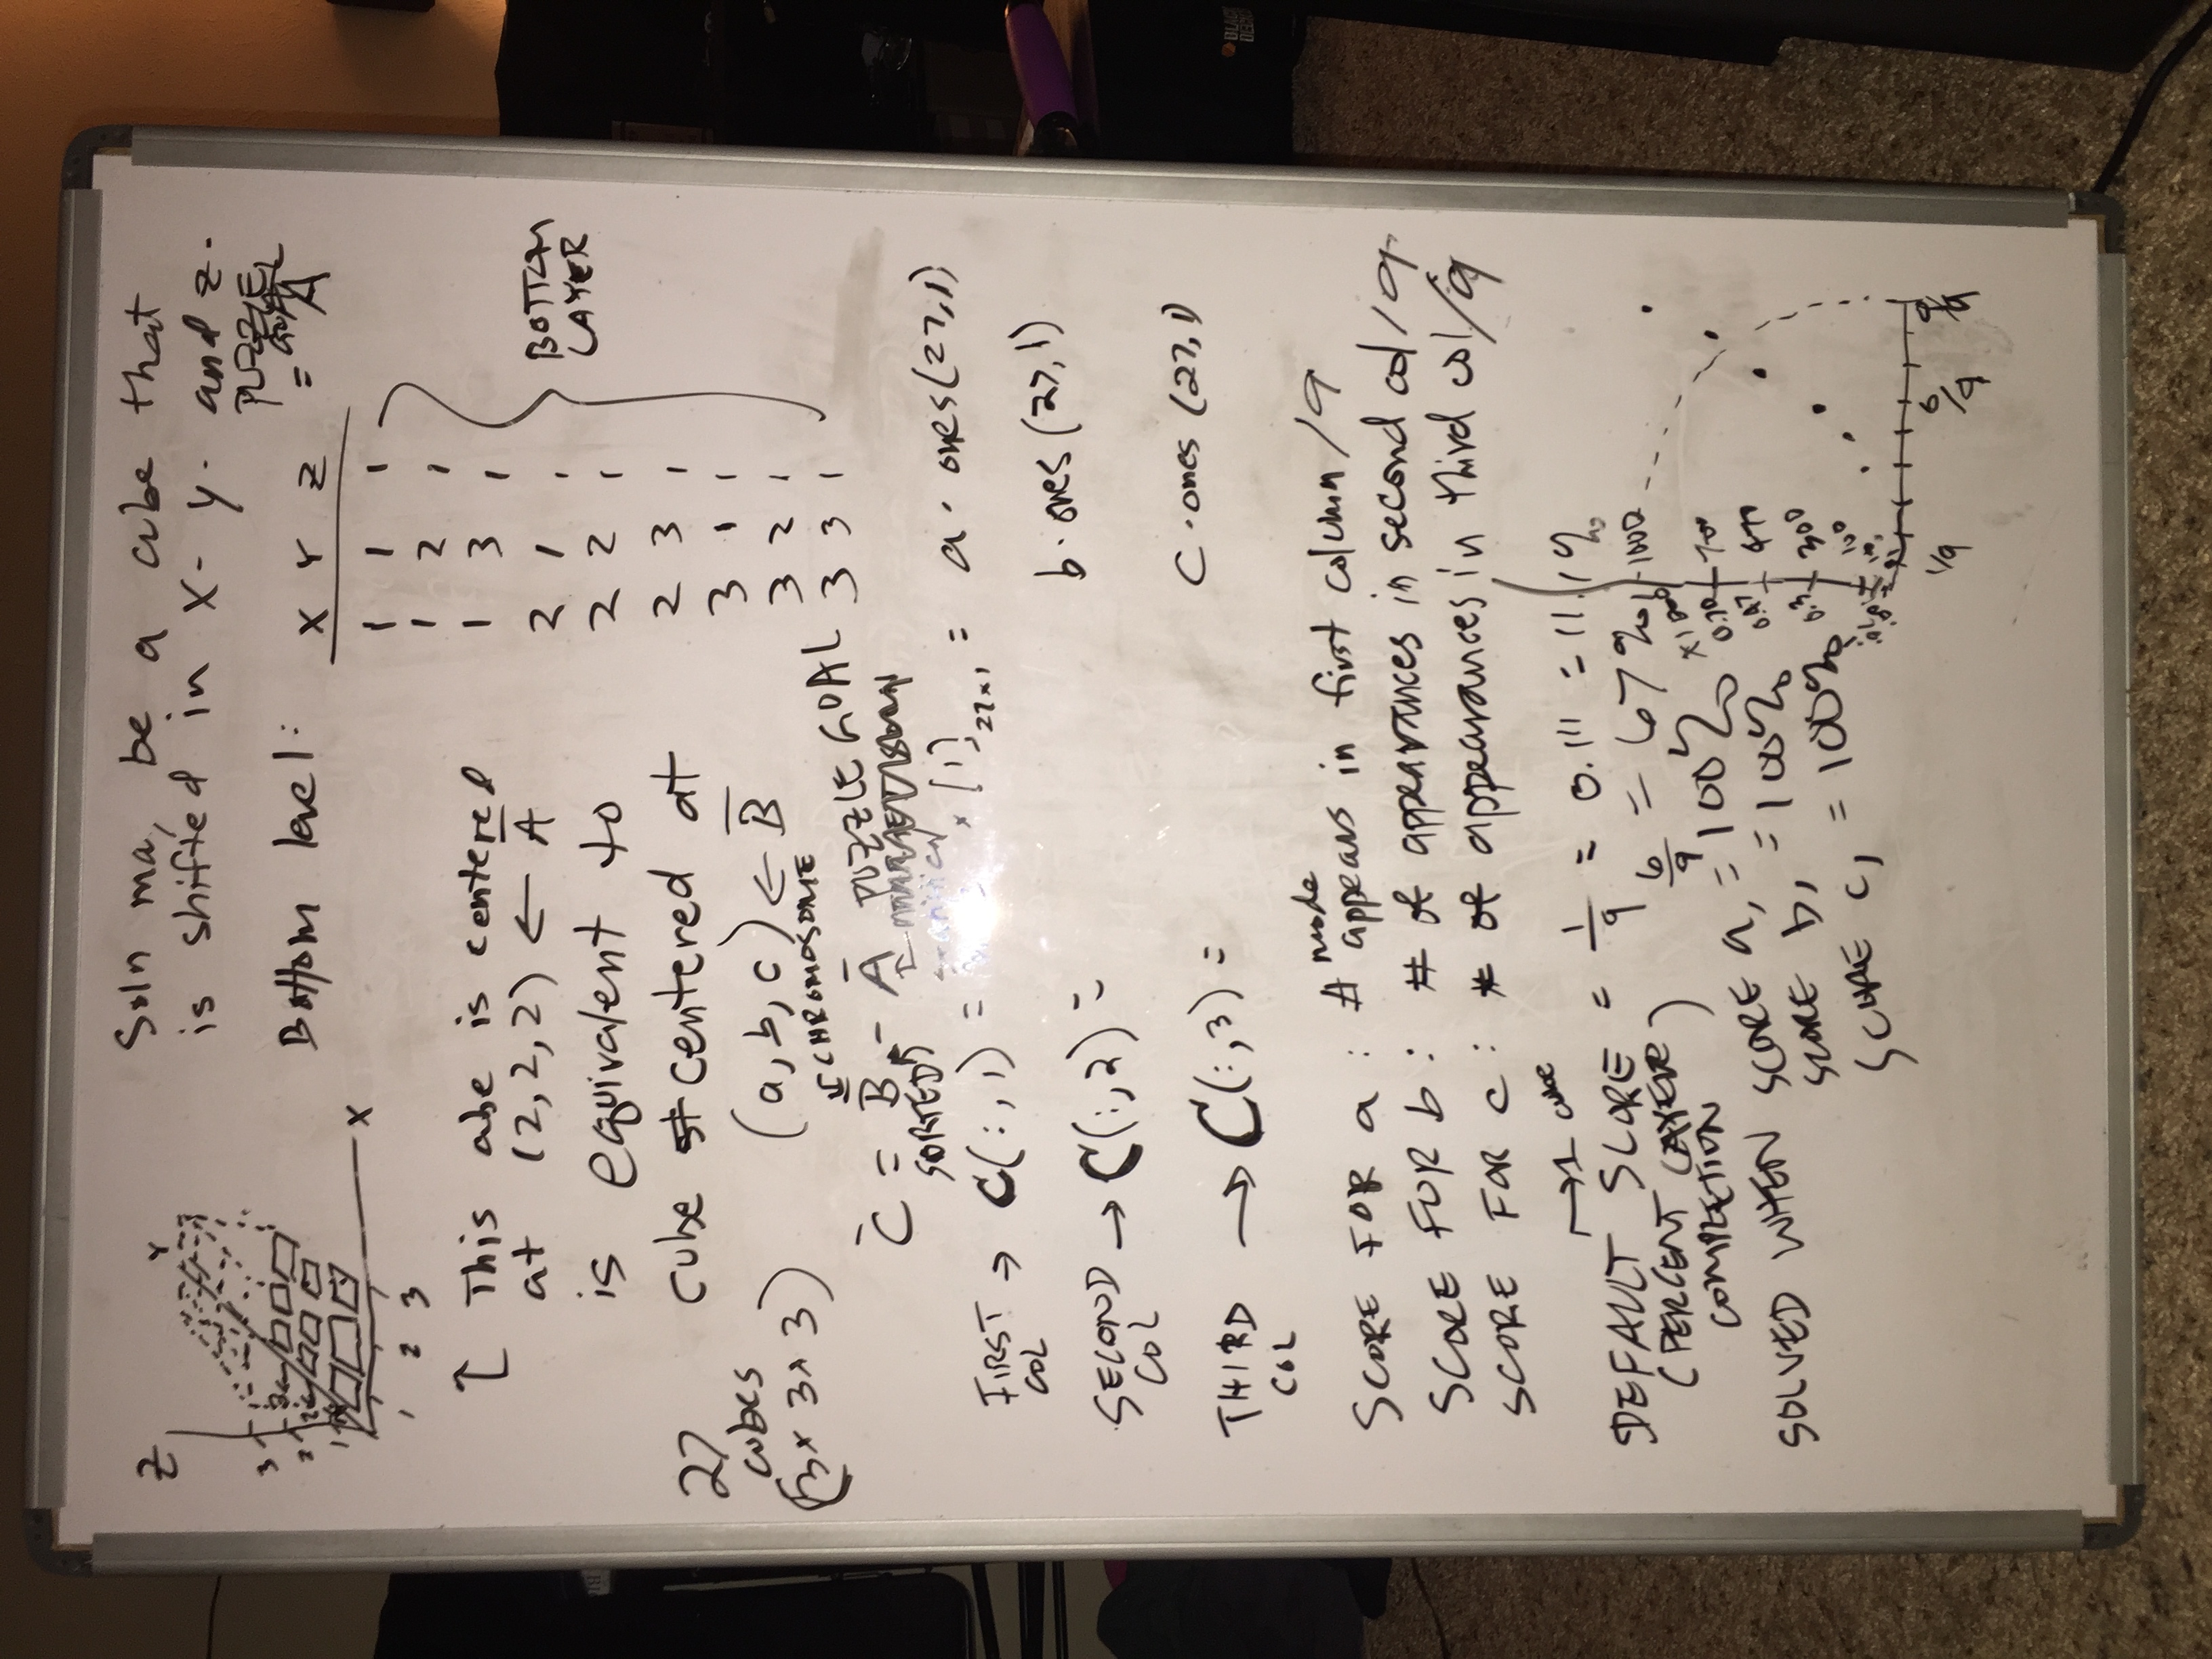 Soln ma, be a cube that
is shifted in X- y. and z.
Z
Y
3
2
1
X
1 2 3
PUZZLE
GOAL
Bottom level: X Y Z = A
1 1 1
1 2 1
1 3 1
2 1 1
2 2 1
2 3 1
3 1 1
3 2 1
3 3 1
BOTTOM
LAYER
↑ This cube is centered
at (2,2,2) ← A
is equivalent to
cube centered at
(a, b, c) ← B
27
cubes
(3x 3x 3)
CHROMOSOME
C = B - A PUZZLE GOAL
SORTED
FIRST
COL → C(:,1) = x [1]27x1 = a · ones(27,1)
SECOND
COL → C(:,2) = b · ones (27,1)
THIRD
COL → C(:,3) = C · ones (27,1)
SCORE FOR a : # mode appears in first column /9
SCORE FOR b : # of appearances in second col /9
SCORE FOR c : # of appearances in third col /9
→ 1 cube
DEFAULT SCORE = 1/9 = 0.111 = 11.1%
(PERCENT LAYER
COMPLETION)
6/9 = 67%
SOLVED WHEN SCORE a, = 100%
SCORE b, = 100%
SCORE c, = 100%
x1000
1000
0.70 700
0.47 470
0.3 300
100
1/9 6/9 9/9
BLACK
DECKER